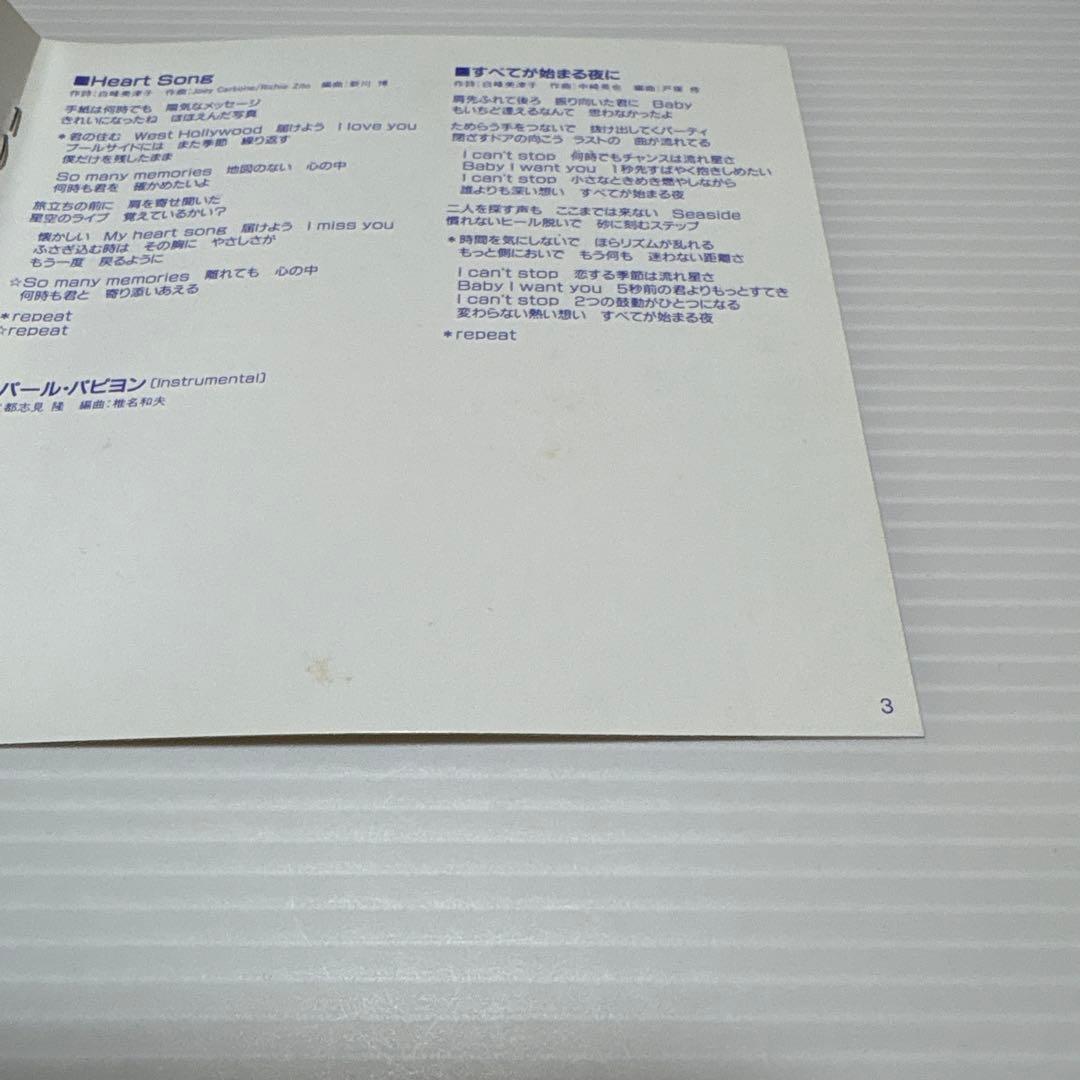 ■Heart Song
作詩:白峰美津子 作曲:Joey Carbone/Richie Zito 編曲:新川 博
手紙は何時でも 陽気なメッセージ
きれいになったね ほほえんだ写真
*君の住む West Hollywood 届けよう I love you
プールサイドには また季節 繰り返す
僕だけを残したまま
So many memories 地図のない 心の中
何時も君を 確かめたいよ
旅立ちの前に 肩を寄せ聞いた
星空のライブ 覚えているかい?
懐かしい My heart song 届けよう I miss you
ふさぎ込む時は その胸に やさしさが
もう一度 戻るように
☆So many memories 離れても 心の中
何時も君と 寄り添いあえる
*repeat
☆repeat
パール・パピヨン〔Instrumental〕
都志見 隆 編曲:椎名和夫
■すべてが始まる夜に
作詩:白峰美津子 作曲:中崎英也 編曲:戸塚 修
肩先ふれて後ろ 振り向いた君に Baby
もいちど逢えるなんて 思わなかったよ
ためらう手をつないで 抜け出してくパーティ
閉ざすドアの向こう ラストの 曲が流れてる
I can't stop 何時でもチャンスは流れ星さ
Baby I want you 1秒先すばやく抱きしめたい
I can't stop 小さなときめき燃やしながら
誰よりも深い想い すべてが始まる夜
二人を探す声も ここまでは来ない Seaside
慣れないヒール脱いで 砂に刻むステップ
*時間を気にしないで ほらリズムが乱れる
もっと側においで もう何も 迷わない距離さ
I can't stop 恋する季節は流れ星さ
Baby I want you 5秒前の君よりもっとすてき
I can't stop 2つの鼓動がひとつになる
変わらない熱い想い すべてが始まる夜
*repeat
3